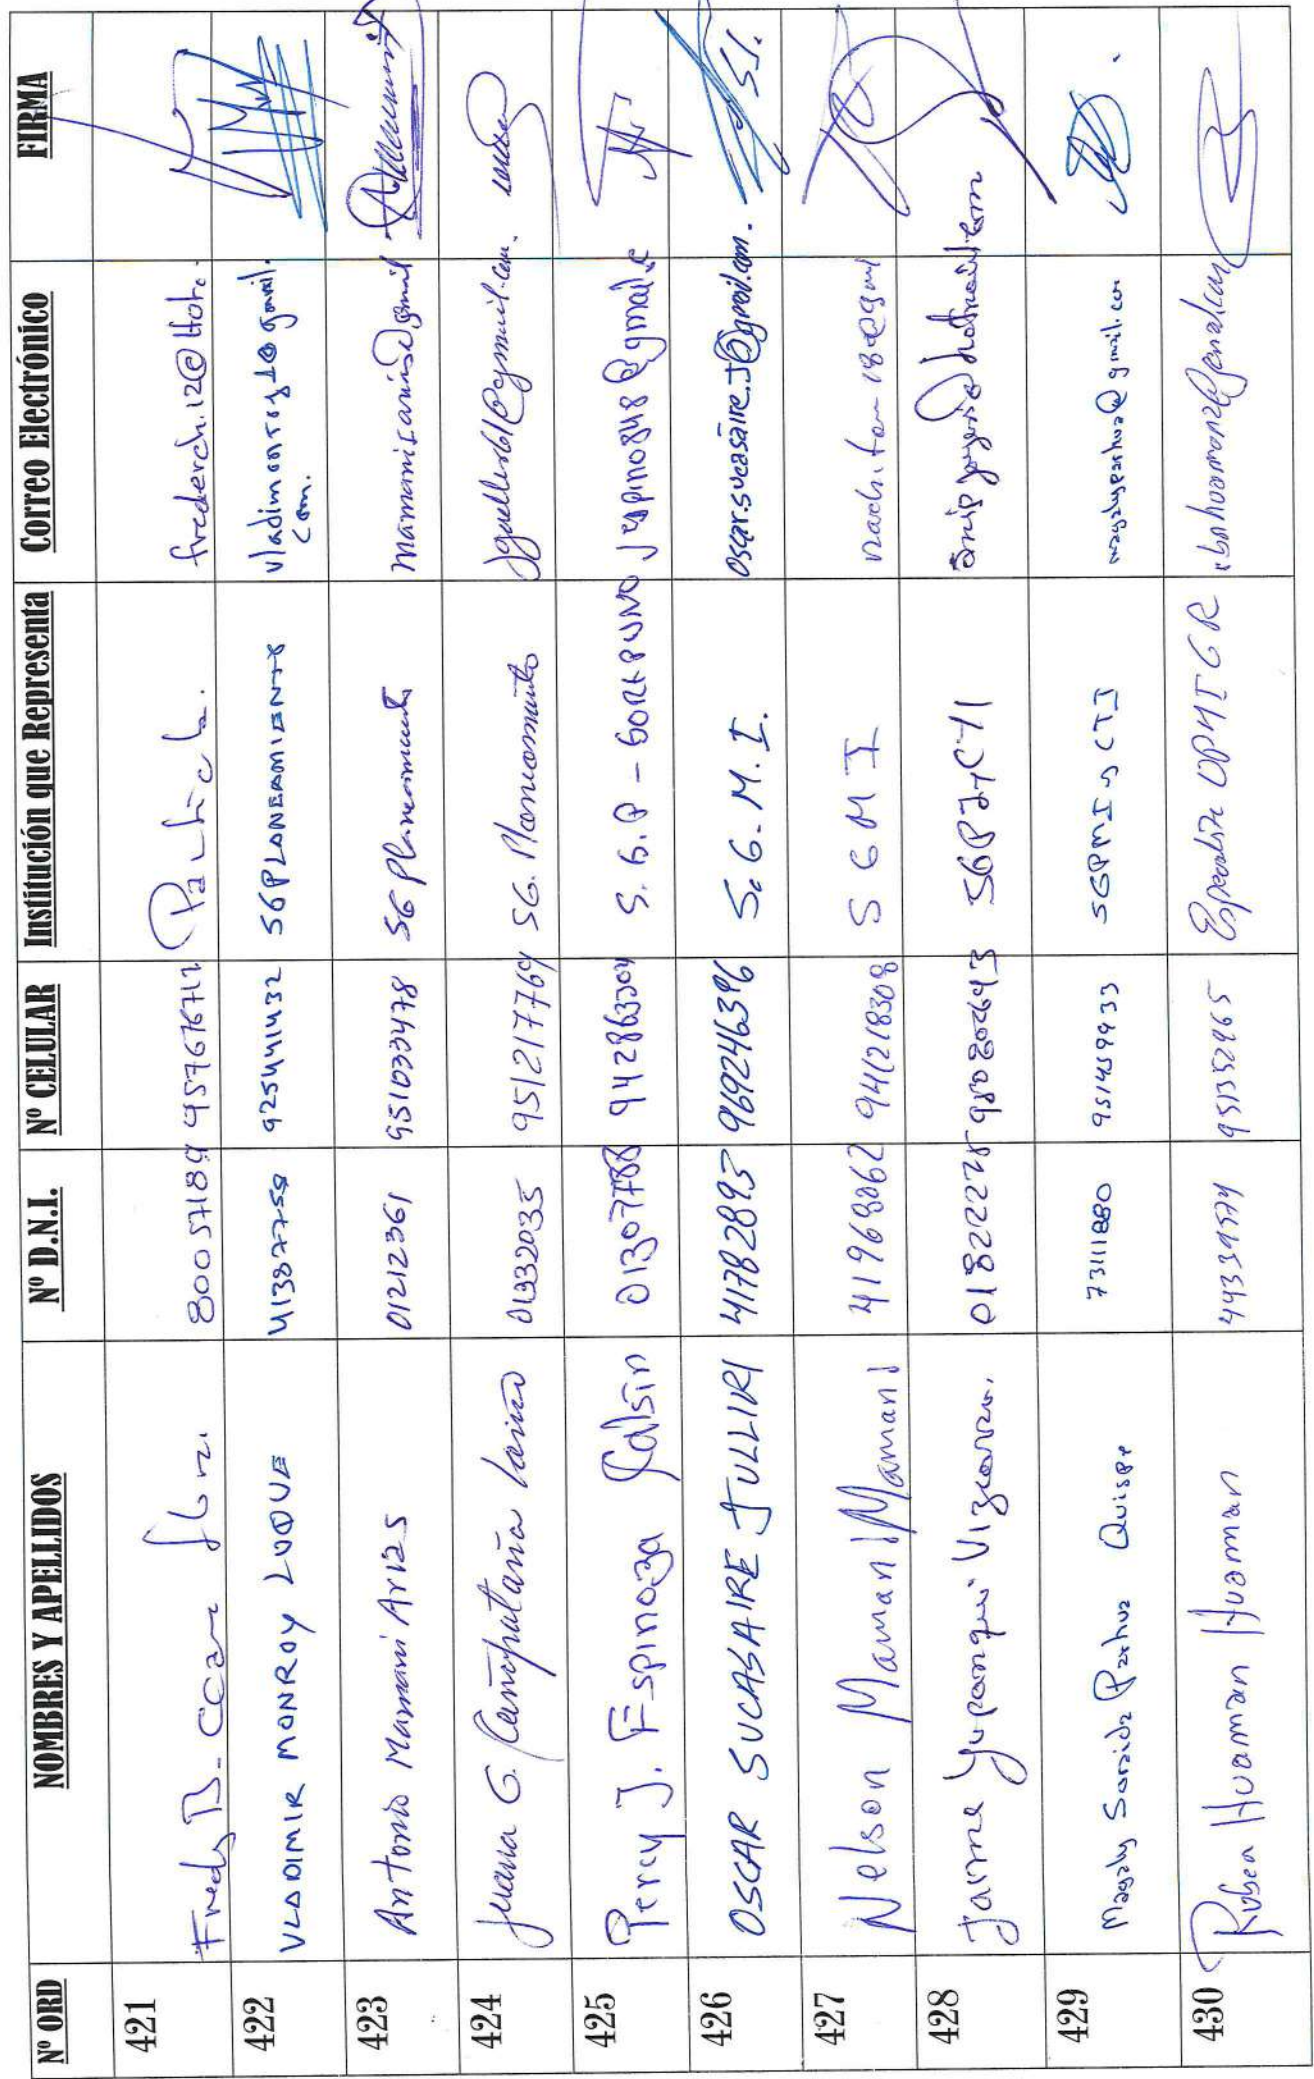 Nº ORD NOMBRES Y APELLIDOS Nº D.N.I. Nº CELULAR Institución que Representa Correo Electrónico FIRMA
421 Fredy B. Ccan 80057189 957676712 frederch.12@Hot.
422 VLADIMIR MONROY LUQUE 41387759 925441432 SGPLANEAMIENTO vladimonroy10@gmail.
com.
423 Antonio Mamani Arias 01212361 951033478 SG Planeamiento mamaniarias@gmail
424 Juana G. 01332035 951217769 SG. Planeamiento
425 Percy J. Espinoza Calsin 01307788 942863304 S.G.P - GORE PUNO jespino848@gmail.c
426 OSCAR SUCASAIRE JULLIRI 41782893 969246396 S.G.M.I. oscar.sucasaire.J@gmail.com.
427 Nelson Mamani Mamani 41969062 941218308 SGMI
428 Jaime Yupanqui Vizcarra. 01822275 980820643
429 Magaly Saraida Paxhua Quispe 73111880 951459933 SGPMI y CTI magalypaxhua@gmail.com
430 Ruben Huaman Huaman 44339574 951352965 Especialista OPMI GR